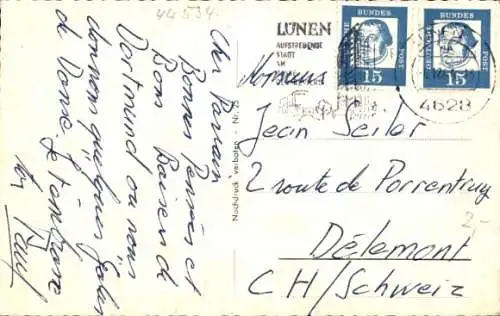 44534
Cher Parrain
Bonnes Pensées et
Bons Baisers de
Dortmund ou nous
donnons quelques Galas
de Danse.
ton
Nachdruck verboten - Nr. 25
LÜNEN
AUFSTREBENDE
STADT
AM
DEUTSCHE BUNDESPOST
15
DEUTSCHE BUNDESPOST
15
4628
Monsieur
Jean Seiler
2 route de Porrentruy
2,-
Délémont
CH/Schweiz